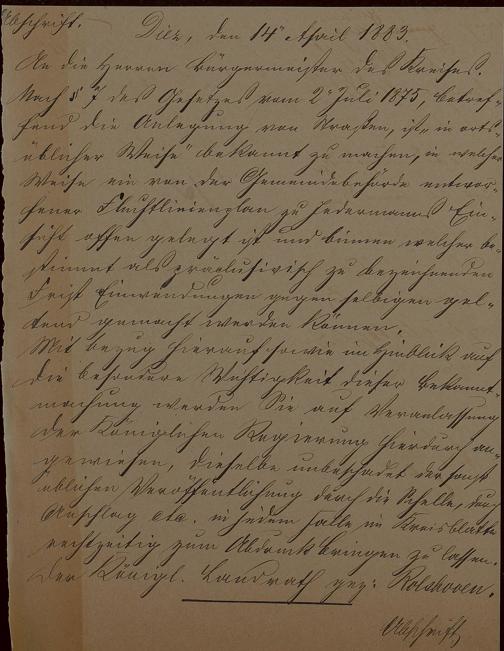 Abschrift.
Diez, den 14ⁿ April 1883.
An die Herren Bürgermeister des Kreises.
Nach § 7 des Gesetzes vom 2ⁿ Juli 1875, betref-
fend die Anlegung von Straßen, ist „in orts-
üblicher Weise" bekannt zu machen, in welcher
Weise ein von der Gemeindebehörde entwor-
fener Fluchtlinienplan zu Jedermanns Ein-
sicht offen gelegt ist und binnen welcher be-
stimmt als präclusivisch zu bezeichnenden
Frist Einwendungen gegen selbigen gel-
tend gemacht werden können.
Mit bezug hierauf sowie im Hinblick auf
die besondere Wichtigkeit dieser Bekannt-
machung werden Sie auf Veranlassung
der Königlichen Regierung hierdurch an-
gewiesen, dieselbe unbeschadet der sonst
üblichen Veröffentlichung durch die Schelle, durch
Anschlag etc. in jedem Falle im Kreisblatte
rechtzeitig zum Abdruck bringen zu lassen.
Der Königl. Landrath gez: Rolshoven.
Abschrift